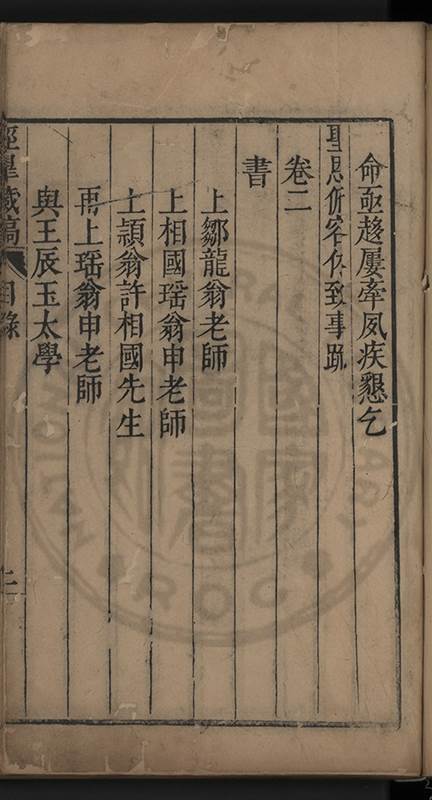 命亟趨屢牽夙疾懇乞
聖恩俯容休致事疏
卷二
書
上鄒龍翁老師
上相國瑶翁申老師
上頴翁許相國先生
再上瑶翁申老師
與王辰玉太學
涇臯藏稿 目錄 二